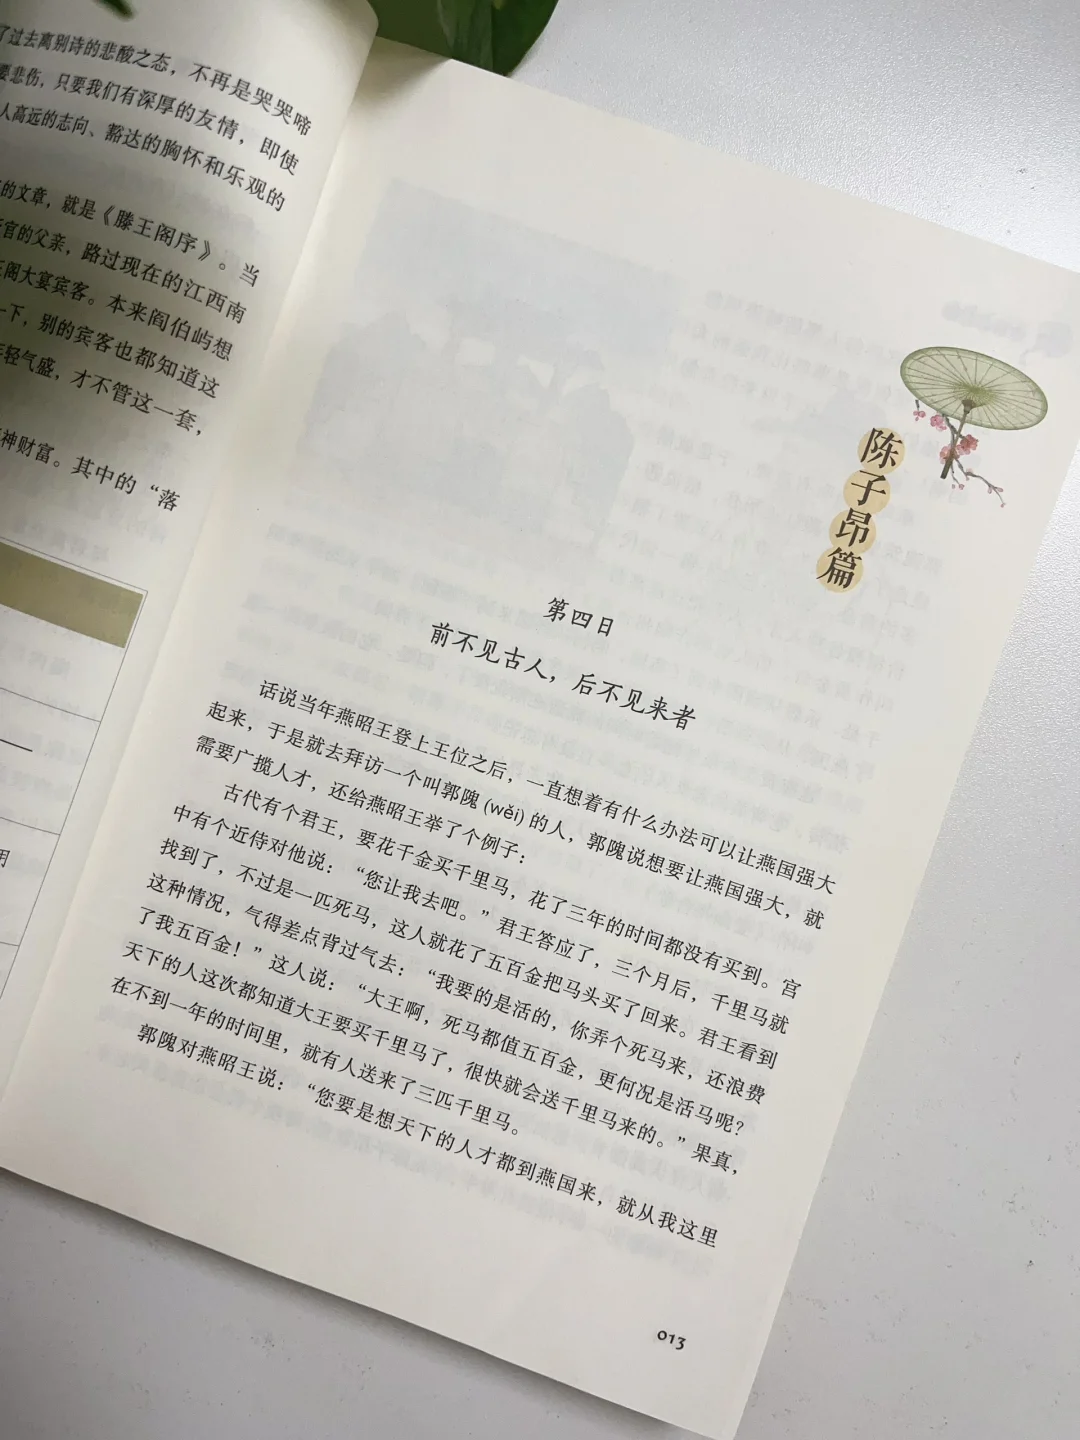 了过去离别诗的悲酸之态，不再是哭哭啼
要悲伤，只要我们有深厚的友情，即使
人高远的志向、豁达的胸怀和乐观的
的文章，就是《滕王阁序》。当
官的父亲，路过现在的江西南
阁大宴宾客。本来阎伯屿想
一下，别的宾客也都知道这
年轻气盛，才不管这一套，
神财富。其中的“落
用
陈子昂篇
第四日
前不见古人，后不见来者
话说当年燕昭王登上王位之后，一直想着有什么办法可以让燕国强大
起来，于是就去拜访一个叫郭隗(wěi)的人，郭隗说想要让燕国强大，就
需要广揽人才，还给燕昭王举了个例子：
古代有个君王，要花千金买千里马，花了三年的时间都没有买到。宫
中有个近侍对他说：“您让我去吧。”君王答应了，三个月后，千里马就
找到了，不过是一匹死马，这人就花了五百金把马头买了回来。君王看到
这种情况，气得差点背过气去：“我要的是活的，你弄个死马来，还浪费
了我五百金！”这人说：“大王啊，死马都值五百金，更何况是活马呢？
天下的人这次都知道大王要买千里马了，很快就会送千里马来的。”果真，
在不到一年的时间里，就有人送来了三匹千里马。
郭隗对燕昭王说：“您要是想天下的人才都到燕国来，就从我这里
013